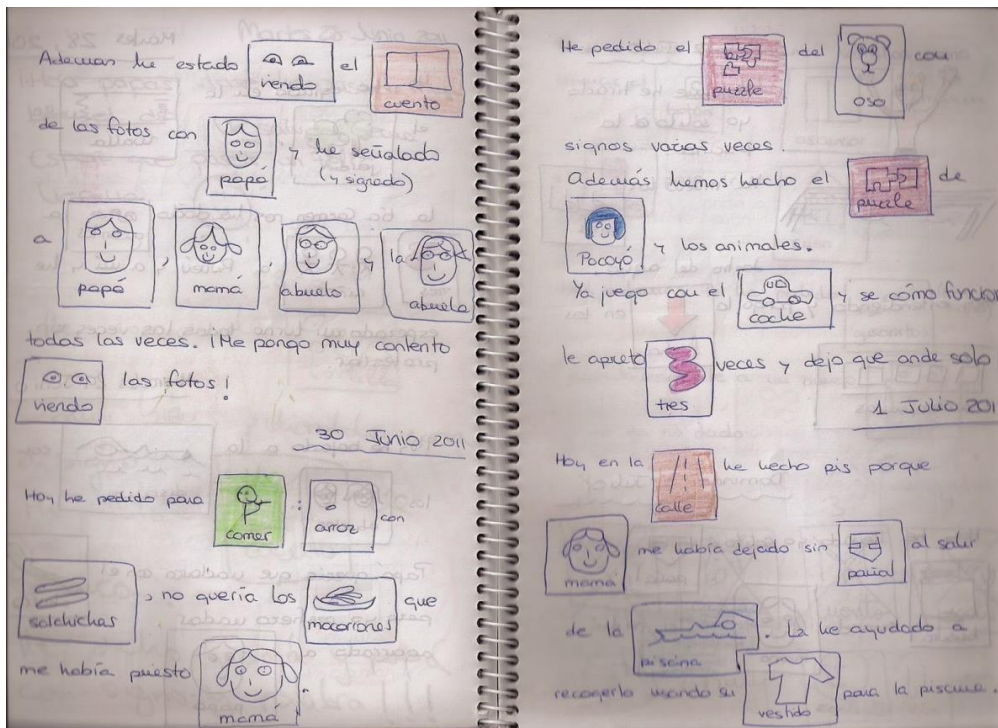 Ademas he estado viendo el cuento
de las fotos con papa y he señalado
(y signado)
a papá, mamá, abuelo y la abuela
todas las veces. ¡Me pongo muy contento
viendo las fotos!
30 Junio 2011
Hoy he pedido para comer : arroz con
salchichas, no quería los macarrones que
me había puesto mamá.
He pedido el puzzle del oso con
signos varias veces.
Además hemos hecho el puzzle de
Pocoyó y los animales.
Ya juego con el coche y se cómo funcion
le apreto tres veces y dejo que ande solo
1 Julio 201
Hoy en la calle he hecho pis porque
mamá me había dejado sin pañal al salir
de la piscina. La he ayudado a
recogerlo usando su vestido para la piscina.